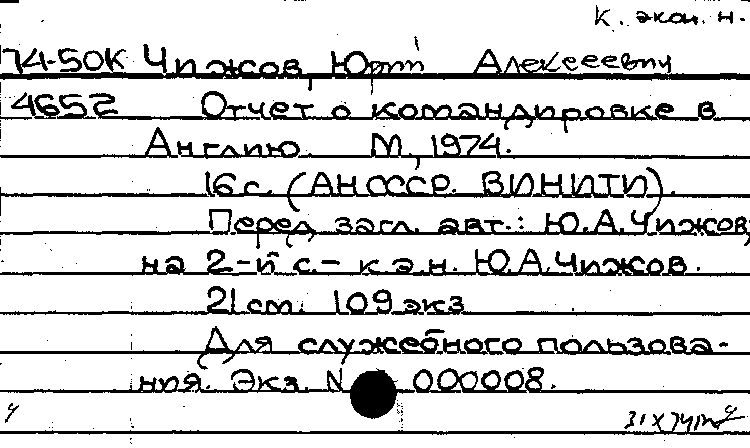 к. экон. н.
74-50К Чижов, Юрий Алексеевич
4652 Отчет о командировке в
Англию. М., 1974.
16 с. (АН СССР. ВИНИТИ).
Перед загл. авт.: Ю.А.Чижов,
на 2-й с. - к.э.н. Ю.А.Чижов.
21 см. 109 экз
Для служебного пользова-
ния. Экз. N 000008.